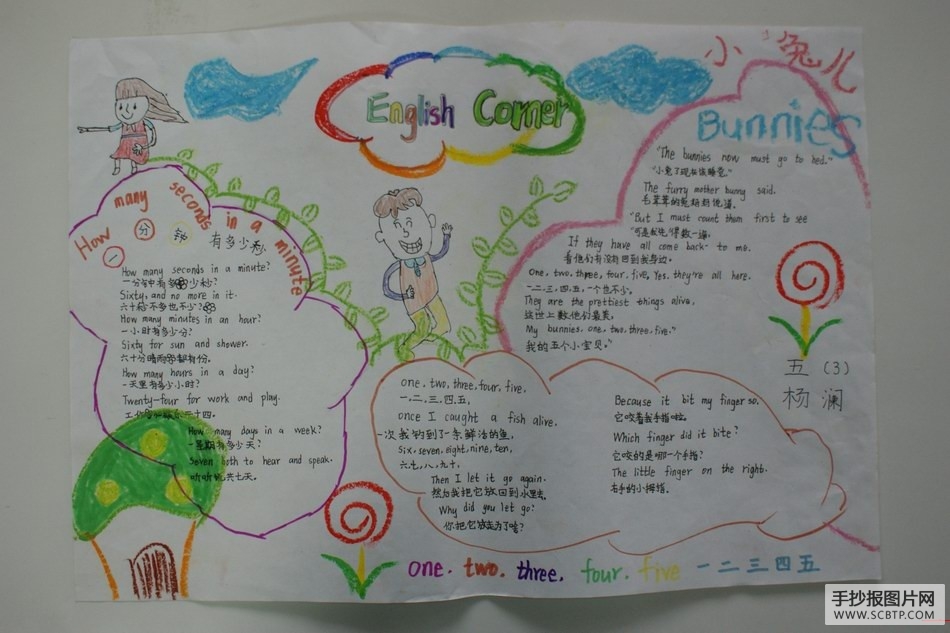 English Corner
小兔儿
Bunnies
How many seconds in a minute
一分钟有多少秒
How many seconds in a minute?
一分钟中有多少秒?
Sixty, and no more in it.
六十秒不多也不少?
How many minutes in an hour?
一小时有多少分?
Sixty for sun and shower.
六十分晴雨都有份。
How many hours in a day?
一天里有多少小时?
Twenty-four for work and play.
二十四。
How many days in a week?
一星期有多少天?
Seven both to hear and speak.
听听说共七天。
"The bunnies now must go to bed."
"小兔子现在该睡觉。"
The furry mother bunny said.
毛茸茸的兔妈妈说道。
"But I must count them first to see
"可是我先得数一遍
If they have all come back to me.
看他们有没有回到我身边。
One, two, three, four, five, Yes, they're all here.
一二、三、四、五,一个也不少。
They are the prettiest things alive,
这世上数他们最美。
My bunnies, one, two, three, five."
我的五个小宝贝。"
五 (3)
杨 澜
one, two, three, four, five,
一、二、三、四、五,
once I caught a fish alive.
一次我钓到了一条鲜活的鱼,
Six, seven, eight, nine, ten,
六、七、八、九、十,
Then I let it go again.
然后我把它放回到小里去。
Why did you let go?
你把它放去为了啥?
Because it bit my finger so,
它咬着我手指啦。
Which finger did it bite?
它咬的是哪一个手指?
The little finger on the right.
右手的小拇指。
one. two. three. four. five 一二三四五
手抄报图片网
WWW.SCBTP.COM